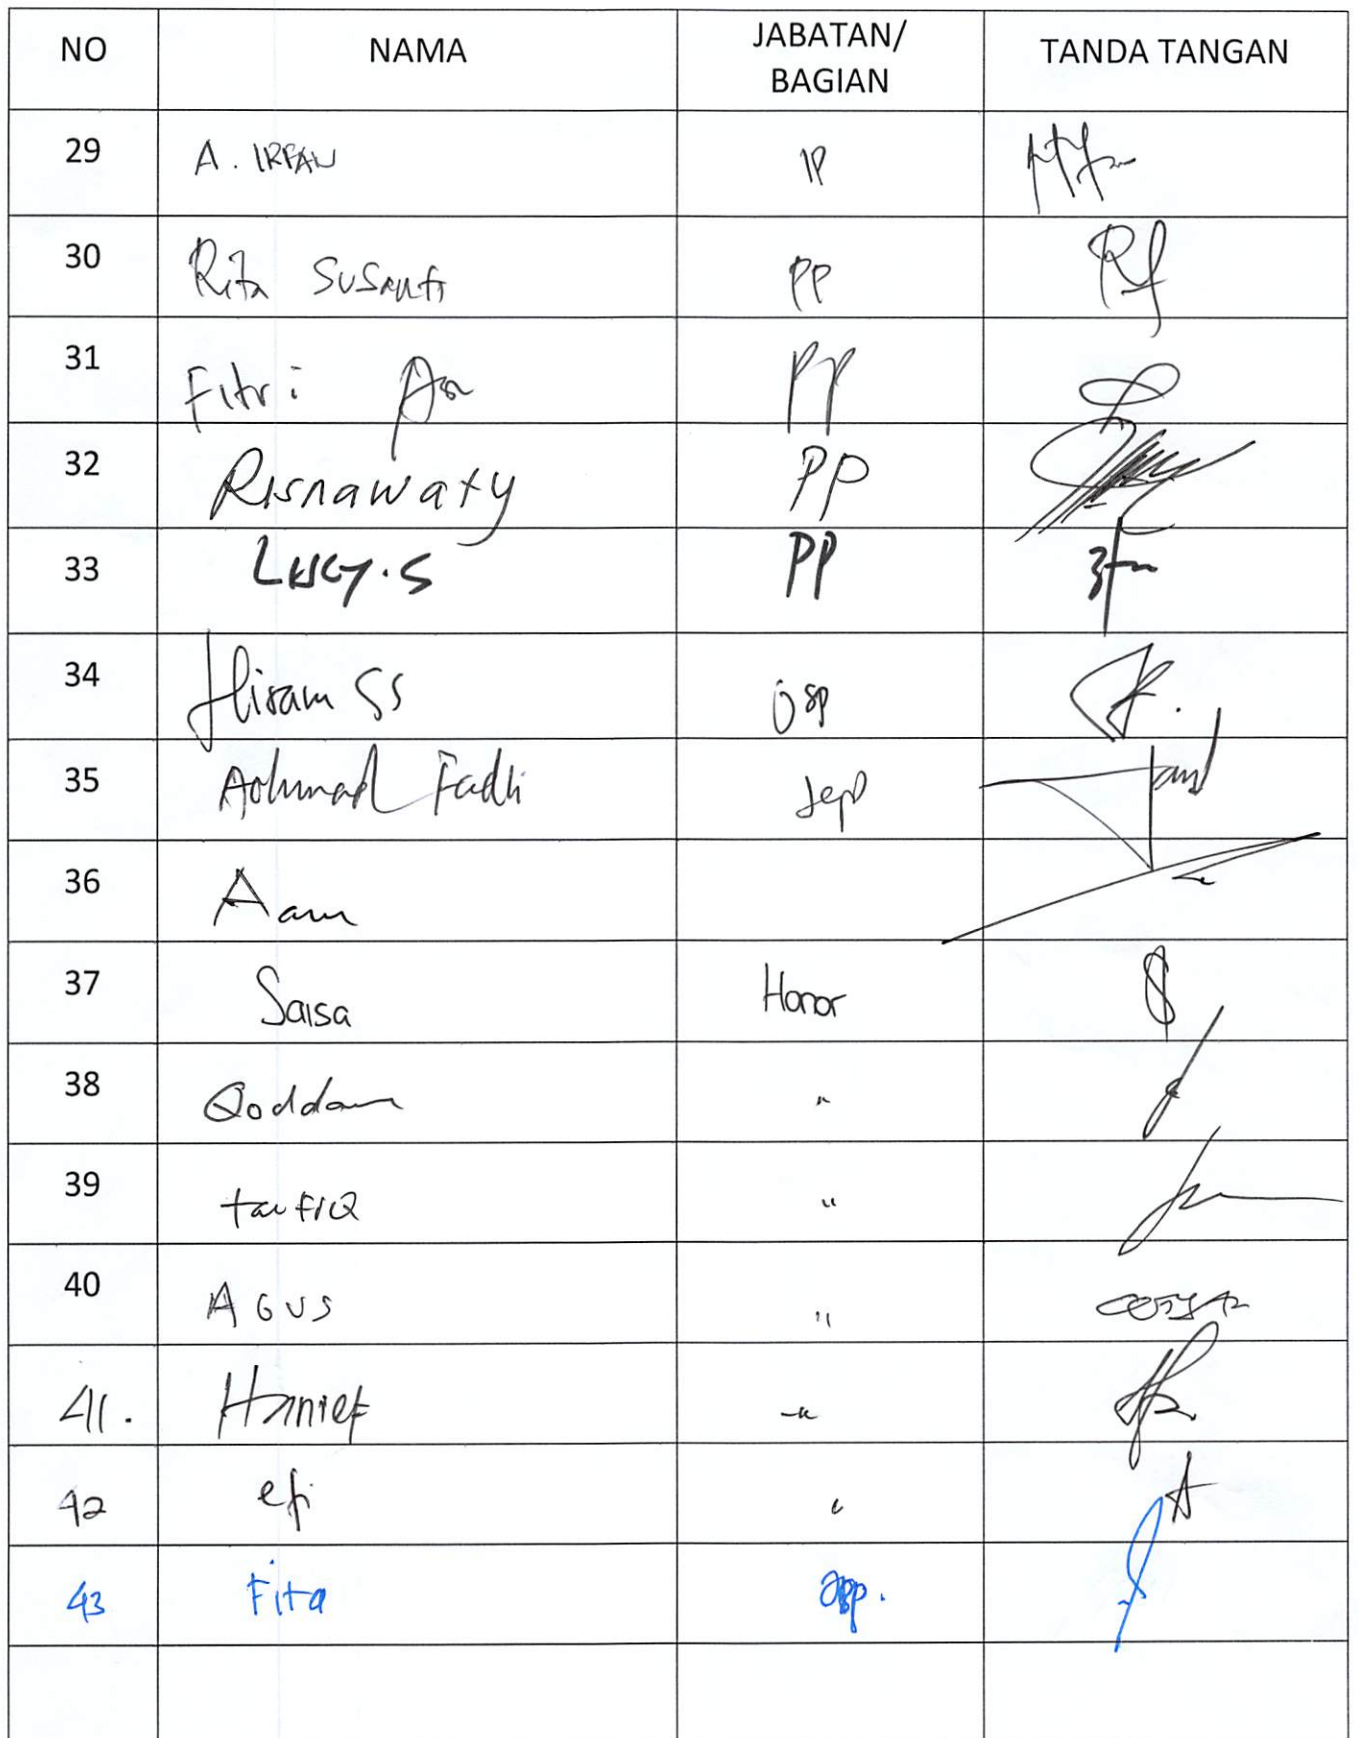 NO NAMA JABATAN/ BAGIAN TANDA TANGAN
29 A. IRFAN IP
30 Rita Susanti PP
31 Fitri PP
32 Risnawaty PP
33 Lucy.S PP
34 Hiram SS
35 Achmad Fadli
36 Aam
37 Salsa Honor
38 Qoddam "
39 taufiq "
40 AGUS "
41. Hanief -"-
42 efi "
43 Fita